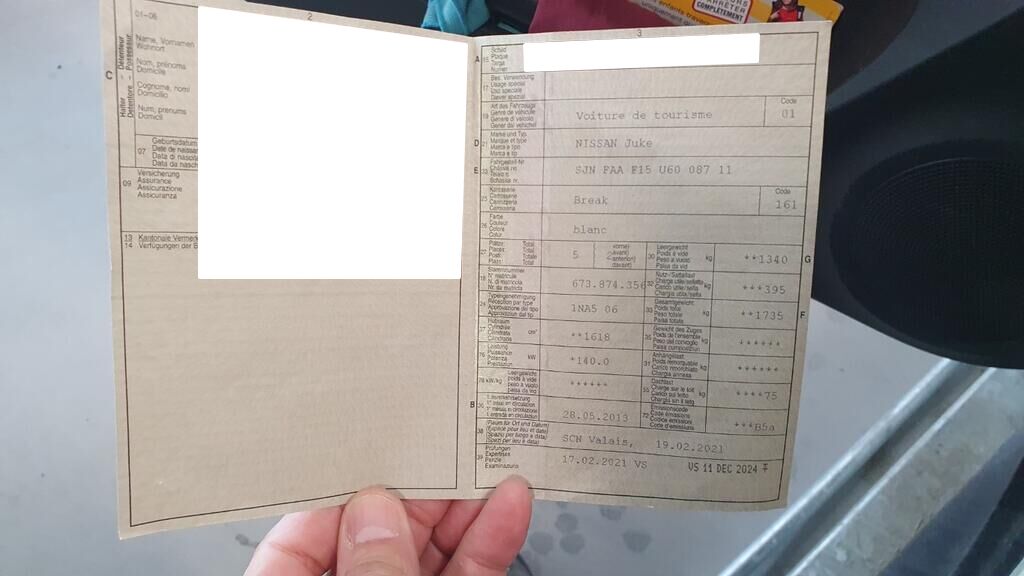 2
01-06
Name, Vornamen
Wohnort
Nom, prénoms
Domicile
Cognome, nomi
Domicilio
Num, prenums
Domicil
Halter - Détenteur
Detentore - Possessur
C
07
Geburtsdatum
Date de naissa
Data di nascita
Data da nasch
09
Versicherung
Assurance
Assicurazione
Assicuranza
13 Kantonale Vermerk
14 Verfügungen der B
3
A 15 Schild
Plaque
Targa
Numer
17 Bes. Verwendung
Usage spécial
Uso speciale
Diever spezial
19 Art des Fahrzeugs
Genre de véhicule
Genere di veicolo
Gener dal vehichel
Voiture de tourisme
Code
01
D 21 Marke und Typ
Marque et type
Marca e tipo
Marca e tip
NISSAN Juke
E 23 Fahrgestell-Nr.
Châssis no
Telaio n.
Schassis nr.
SJN FAA F15 U60 087 11
25 Karosserie
Carrosserie
Carrozzeria
Carossaria
Break
Code
161
26 Farbe
Couleur
Colore
Colur
blanc
27 Plätze: Total
Places: Total
Posti: Totale
Plazs: Total
5
(vorne)
(-avant)
(-anteriori)
(davant)
30 Leergewicht
Poids à vide
Peso a vuoto
Paisa da vid
kg
**1340
G
18 Stammnummer
N° matricule
N. di matricola
Nr. da matricla
673.874.356
32 Nutz-/Sattellast
Charge utile/sellette
Carico utile/sella
Chargia utila/sella
kg
***395
24 Typengenehmigung
Réception par type
Approvazione del tipo
Approvaziun dal tip
1NA5 06
33 Gesamtgewicht
Poids total
Peso totale
Paisa totala
kg
**1735
F
37 Hubraum
Cylindrée
Cilindrata
Cilindrada
cm³
**1618
35 Gewicht des Zuges
Poids de l'ensemble
Peso del convoglio
Paisa cumposiziun
kg
******
76 Leistung
Puissance
Potenza
Prestaziun
kW
*140.0
31 Anhängelast
Poids remorquable
Carico rimorchiato
Chargia annexa
kg
******
78 kW/kg
Leergewicht
poids à vide
peso a vuoto
paisa da vid
******
55 Dachlast
Charge sur le toit
Carico sul tetto
Chargia sin il tetg
kg
****75
B 36 1. Inverkehrsetzung
1re mise en circulation
1a messa in circolazione
1. entrada en circulaziun
28.05.2013
72 Emissionscode
Code émissions
Codice emissioni
Code d'emissiuns
***B5a
38 (Raum für Ort und Datum)
(Espace pour lieu et date)
(Spazio per luogo e data)
(Spazi per lieu e data)
SCN Valais, 19.02.2021
39 Prüfungen
Expertises
Perizie
Examinaziuns
17.02.2021 VS
VS 11 DEC 2024